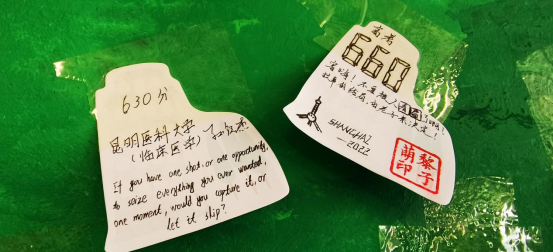 630分
昆明医科大学
(临床医学)
If you have one shot, or one opportunity,
to seize everything you ever wanted,
one moment, would you capture it, or
let it slip?
高考
660
SHANGHAI
-2022
黎子
萌印